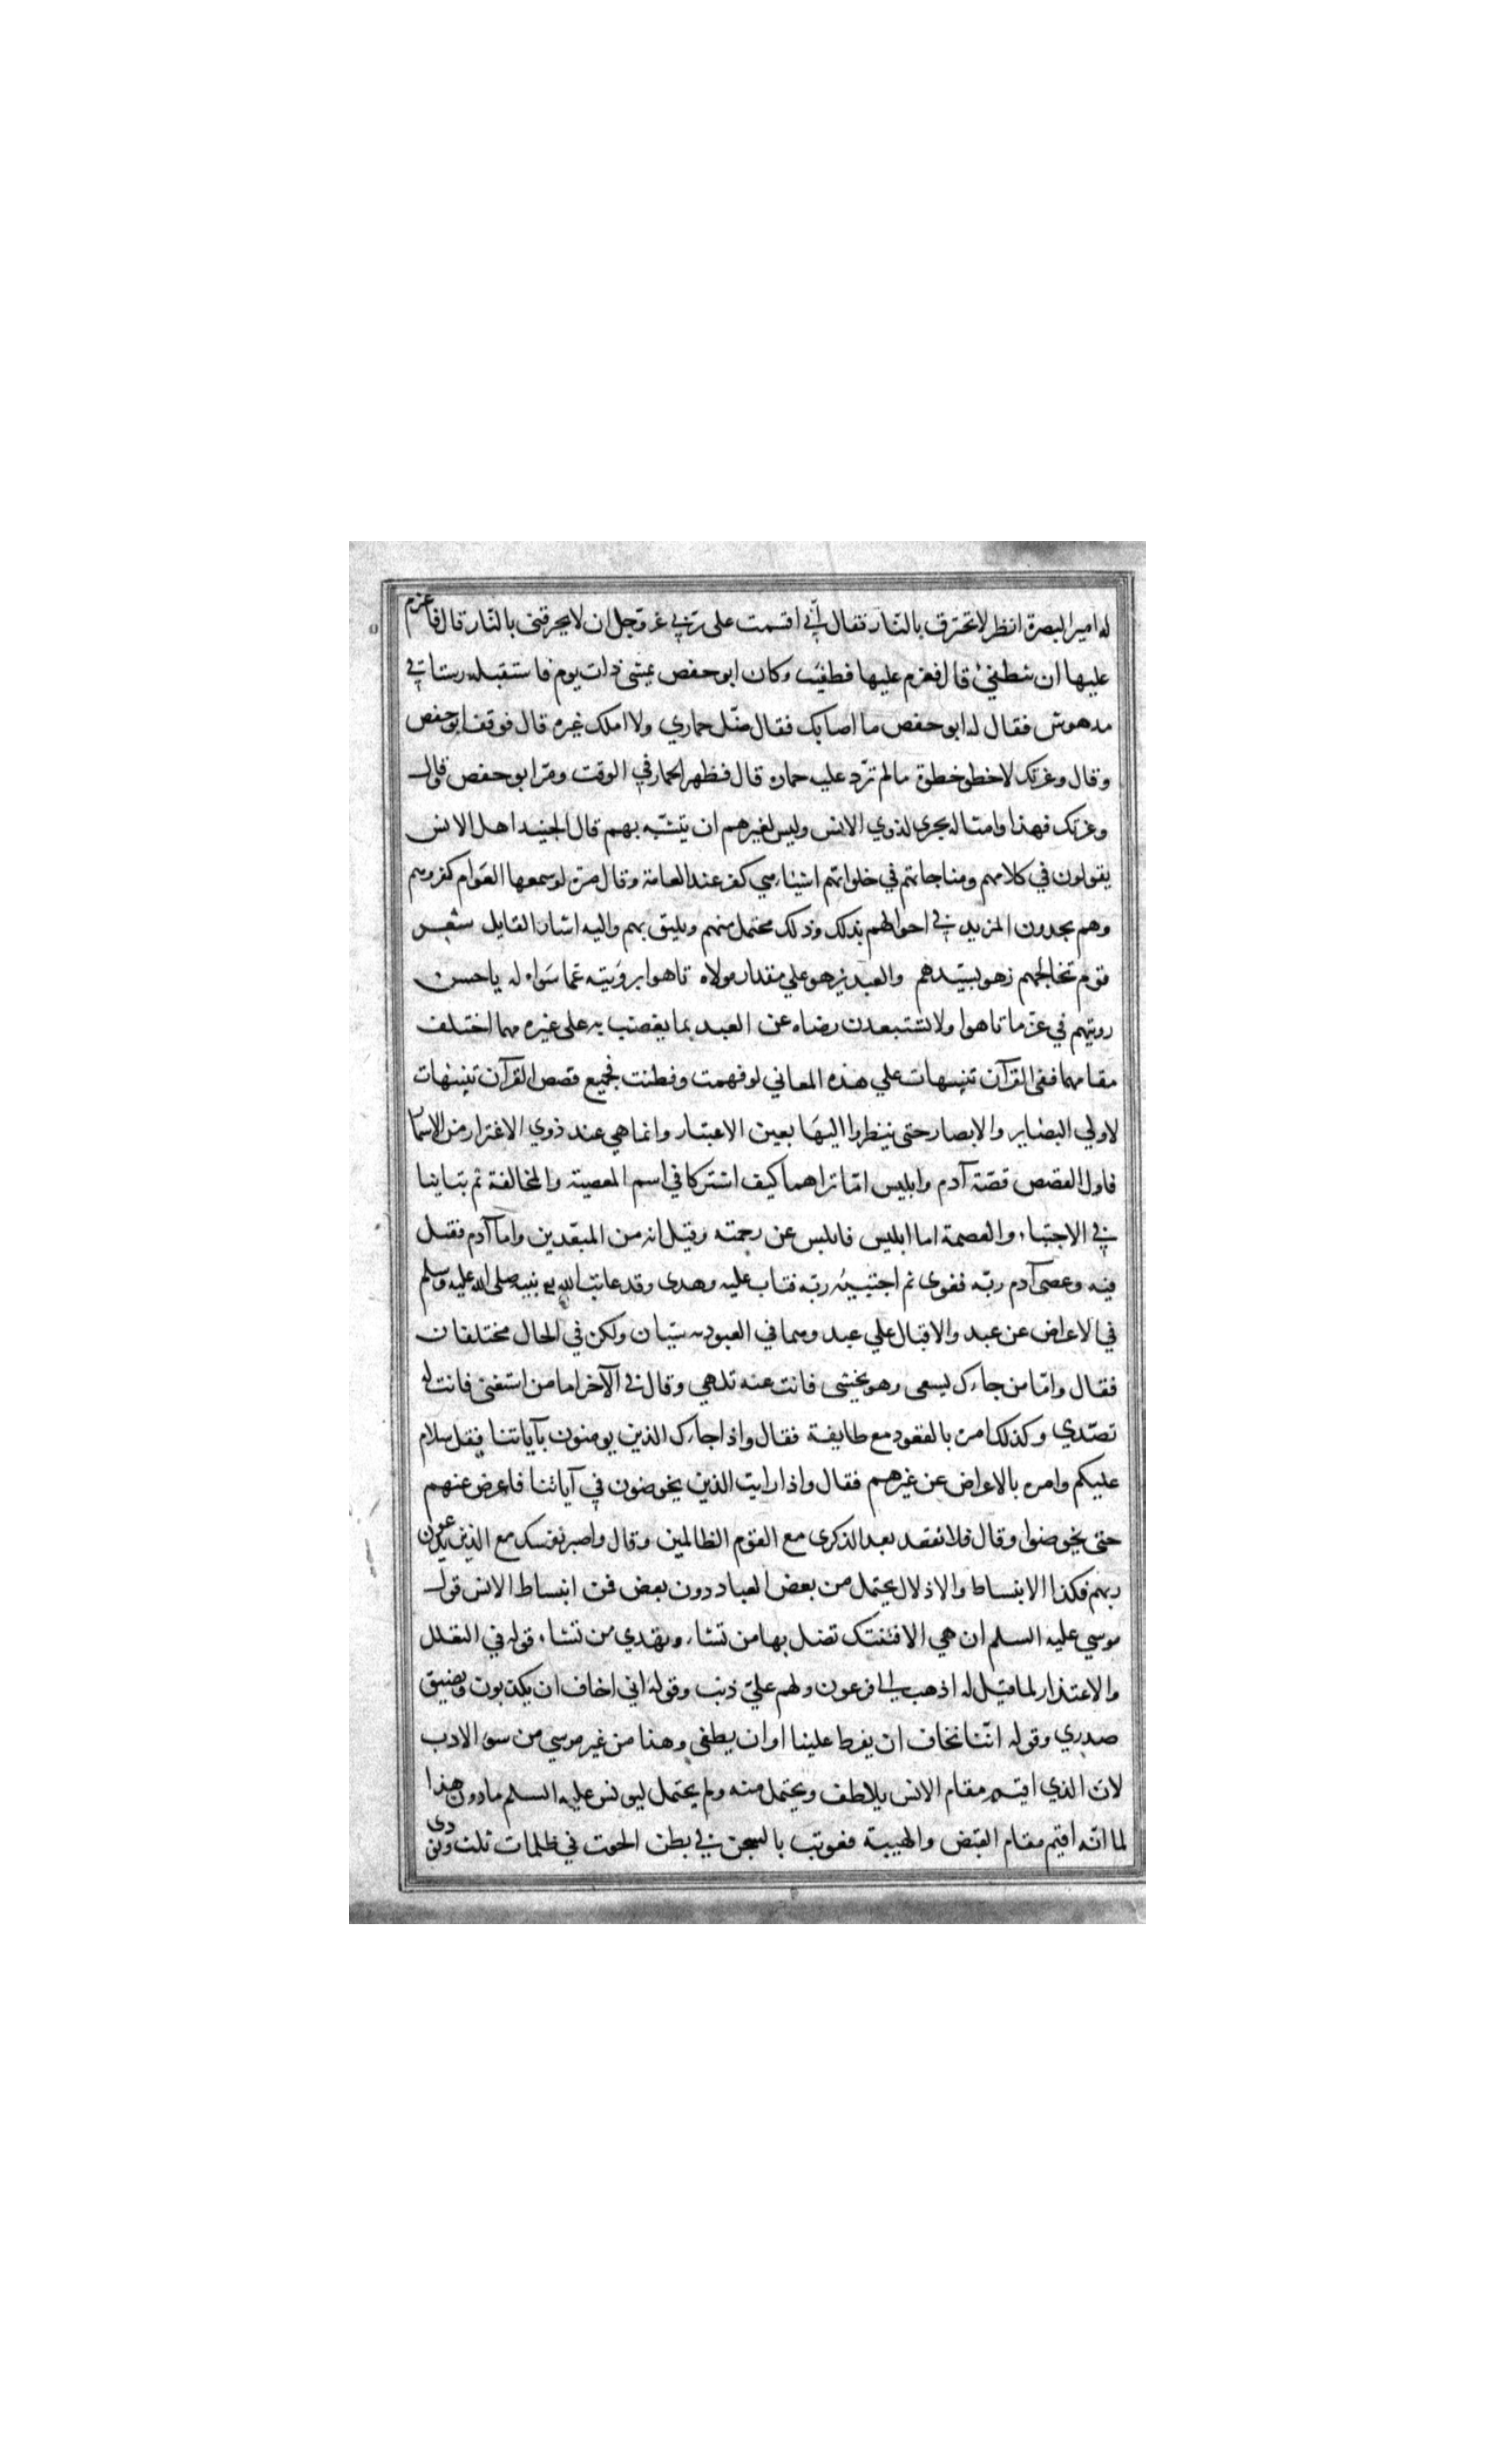 له امير البصرة انظر لا تحترق بالنار فقال اني اقسمت على ربي عز وجل ان لا يحرقني بالنار قال فاعزم
عليها ان تطفئ قال فعزم عليها فطفيت وكان ابو حفص يمشي ذات يوم فاستقبله رستاقي
مدهوش فقال له ابو حفص ما اصابك فقال ضل حماري ولا املك غيره قال فوقف ابو حفص
وقال وعزتك لا خطو خطوة مالم ترد عليه حماره قال فظهر الحمار في الوقت ومر ابو حفص قال
وعزتك فهذا وامثاله يجري لذوي الانس وليس لغيرهم ان يتشبه بهم قال الجنيد اهل الانس
يقولون في كلامهم ومناجاتهم في خلواتهم اشياء هي كفر عند العامة وقال مرة لو سمعها العوام كفروهم
وهم يجدون المزيد في احوالهم بذلك وذلك محتمل منهم ويليق بهم واليه اشار القايل شعر
قوم تخالجهم زهو بسيدهم والعبد يزهو علي مقدار مولاه تاهوا برؤيته عما سواه له يا حسن
رويتهم في عز ما تاهوا ولا تستبعدن رضاه عن العبد بما يغضب به على غيره مهما اختلف
مقامهما ففي القرآن تنبيهات علي هذه المعاني لو فهمت وفطنت فجميع قصص القرآن تنبيهات
لاولي البصاير والابصار حتى ينظروا اليها بعين الاعتبار وانما هي عند ذوي الاغترار من الاسما
فاول القصص قصة آدم وابليس اما تراهما كيف اشتركا في اسم المعصية والمخالفة ثم تباينا
في الاجتباء والعصمة اما ابليس فابلس عن رحمته وقيل انه من المبعدين واما آدم فقيل
فيه وعصى آدم ربه فغوى ثم اجتبيه ربه فتاب عليه وهدى وقد عاتب الله نبيه صلى الله عليه وسلم
في الاعراض عن عبد والاقبال علي عبد وهما في العبوديه سيان ولكن في الحال مختلفان
فقال واما من جاءك يسعى وهو يخشى فانت عنه تلهي وقال في الآخر اما من استغنى فانت له
تصدي وكذلك امره بالقعود مع طايفة فقال واذا جاءك الذين يومنون بآياتنا فقل سلام
عليكم وامره بالاعراض عن غيرهم فقال واذا رايت الذين يخوضون في آياتنا فاعرض عنهم
حتى يخوضوا وقال فلا تقعد بعد الذكرى مع القوم الظالمين وقال واصبر نفسك مع الذين يدعون
ربهم فكذا الانبساط والاذلال يحتمل من بعض العباد دون بعض فمن انبساط الانس قول
موسي عليه السلم ان هي الا فتنتك تضل بها من تشاء وتهدي من تشاء قوله في التعلل
والاعتذار لما قيل له اذهب الي فرعون ولهم علي ذنب وقوله اني اخاف ان يكذبون ويضيق
صدري وقوله اننا نخاف ان يفرط علينا او ان يطغي وهذا من غير موسي من سوء الادب
لان الذي اقيم مقام الانس يلاطف ويحتمل منه ولم يحتمل ليونس عليه السلم مادون هذا
لما انه اقيم مقام القبض والهيبة فعوتب بالسجن في بطن الحوت في ظلمات ثلث ونودى